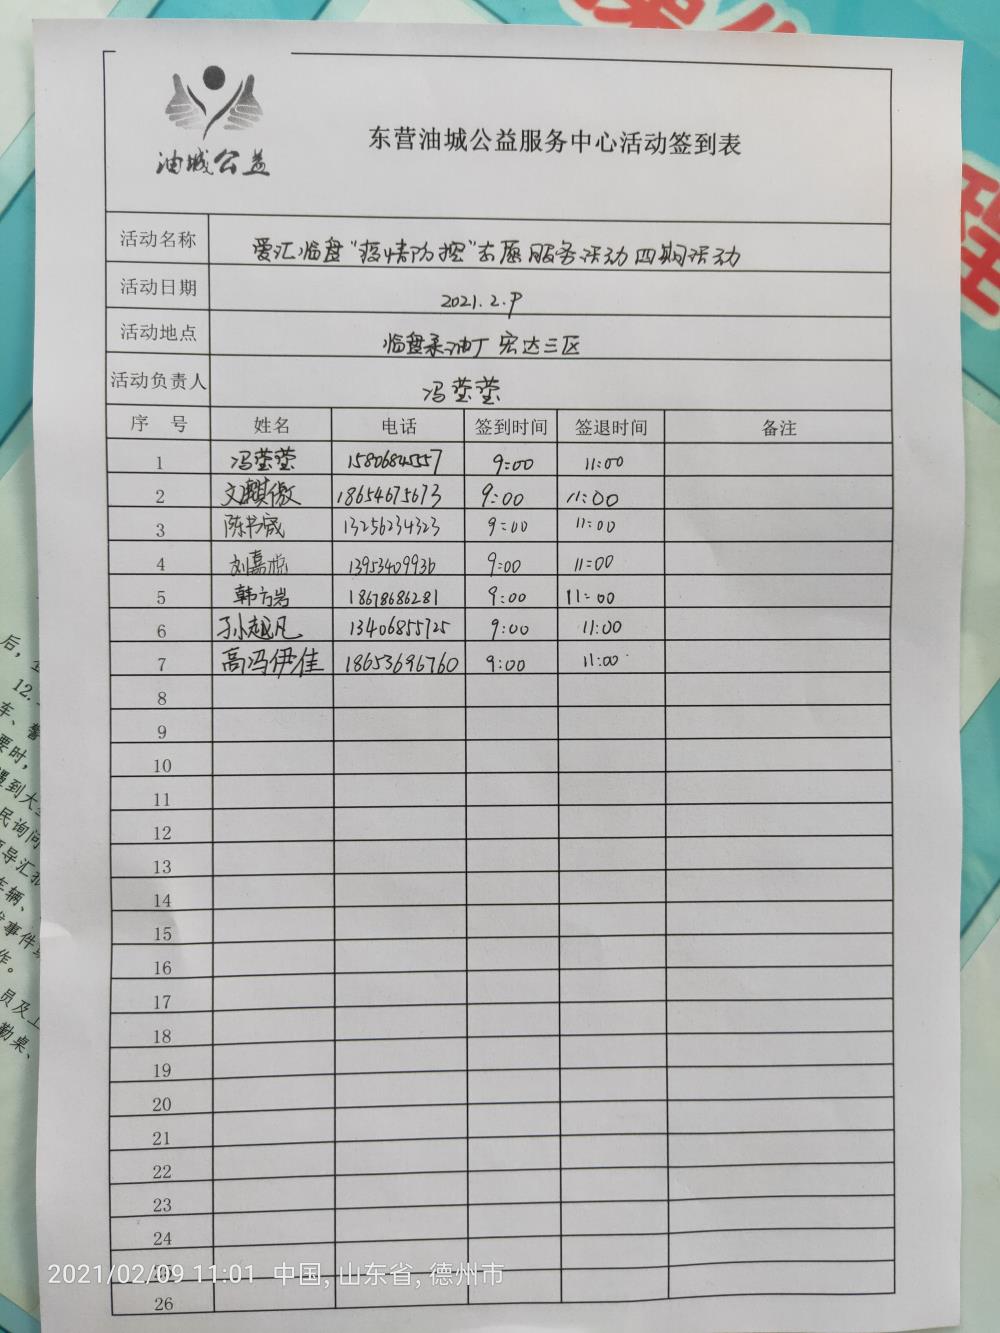 油城公益
东营油城公益服务中心活动签到表
活动名称 爱汇临盘"疫情防控"志愿服务活动四期活动
活动日期 2021.2.9
活动地点 临盘采油厂宏达三区
活动负责人 冯莹莹
序号 姓名 电话 签到时间 签退时间 备注
1 冯莹莹 15806845557 9:00 11:00
2 文麒傲 18654675673 9:00 11:00
3 陈书晟 13256234323 9:00 11:00
4 刘嘉 13953409936 9:00 11:00
5 韩方岩 18678686281 9:00 11:00
6 孙越凡 13406855725 9:00 11:00
7 高冯伊佳 18653696760 9:00 11:00
8
9
10
11
12
13
14
15
16
17
18
19
20
21
22
23
24
25
2021/02/09 11:01 中国,山东省,德州市
26
后,
12.
车、警
要时,
遇到大
民询问
领导汇报
车辆、
事件
作。
员及工
勤桌、
程